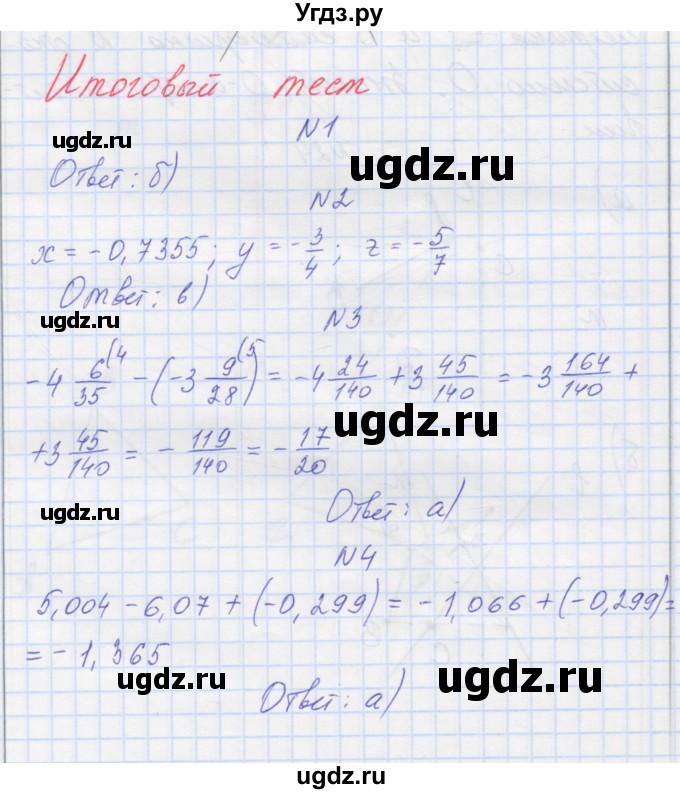 Угдз.ру
Итоговый тест
N1
ugdz.ru
ugdz.ru
Ответ: б)
N2
x = -0,7355; y = -3/4; z = -5/7
Ответ: в)
ugdz.ru
N3
-4 6/35 (4 - (-3 9/28 (5) = -4 24/140 + 3 45/140 = -3 164/140 +
ugdz.ru
+3 45/140 = -119/140 = -17/20
ugdz.ru
Ответ: а)
N4
ugdz.ru
5,004 - 6,07 + (-0,299) = -1,066 + (-0,299) =
= -1,365
ugdz.ru
ugdz.ru
Ответ: а)
ugdz.ru